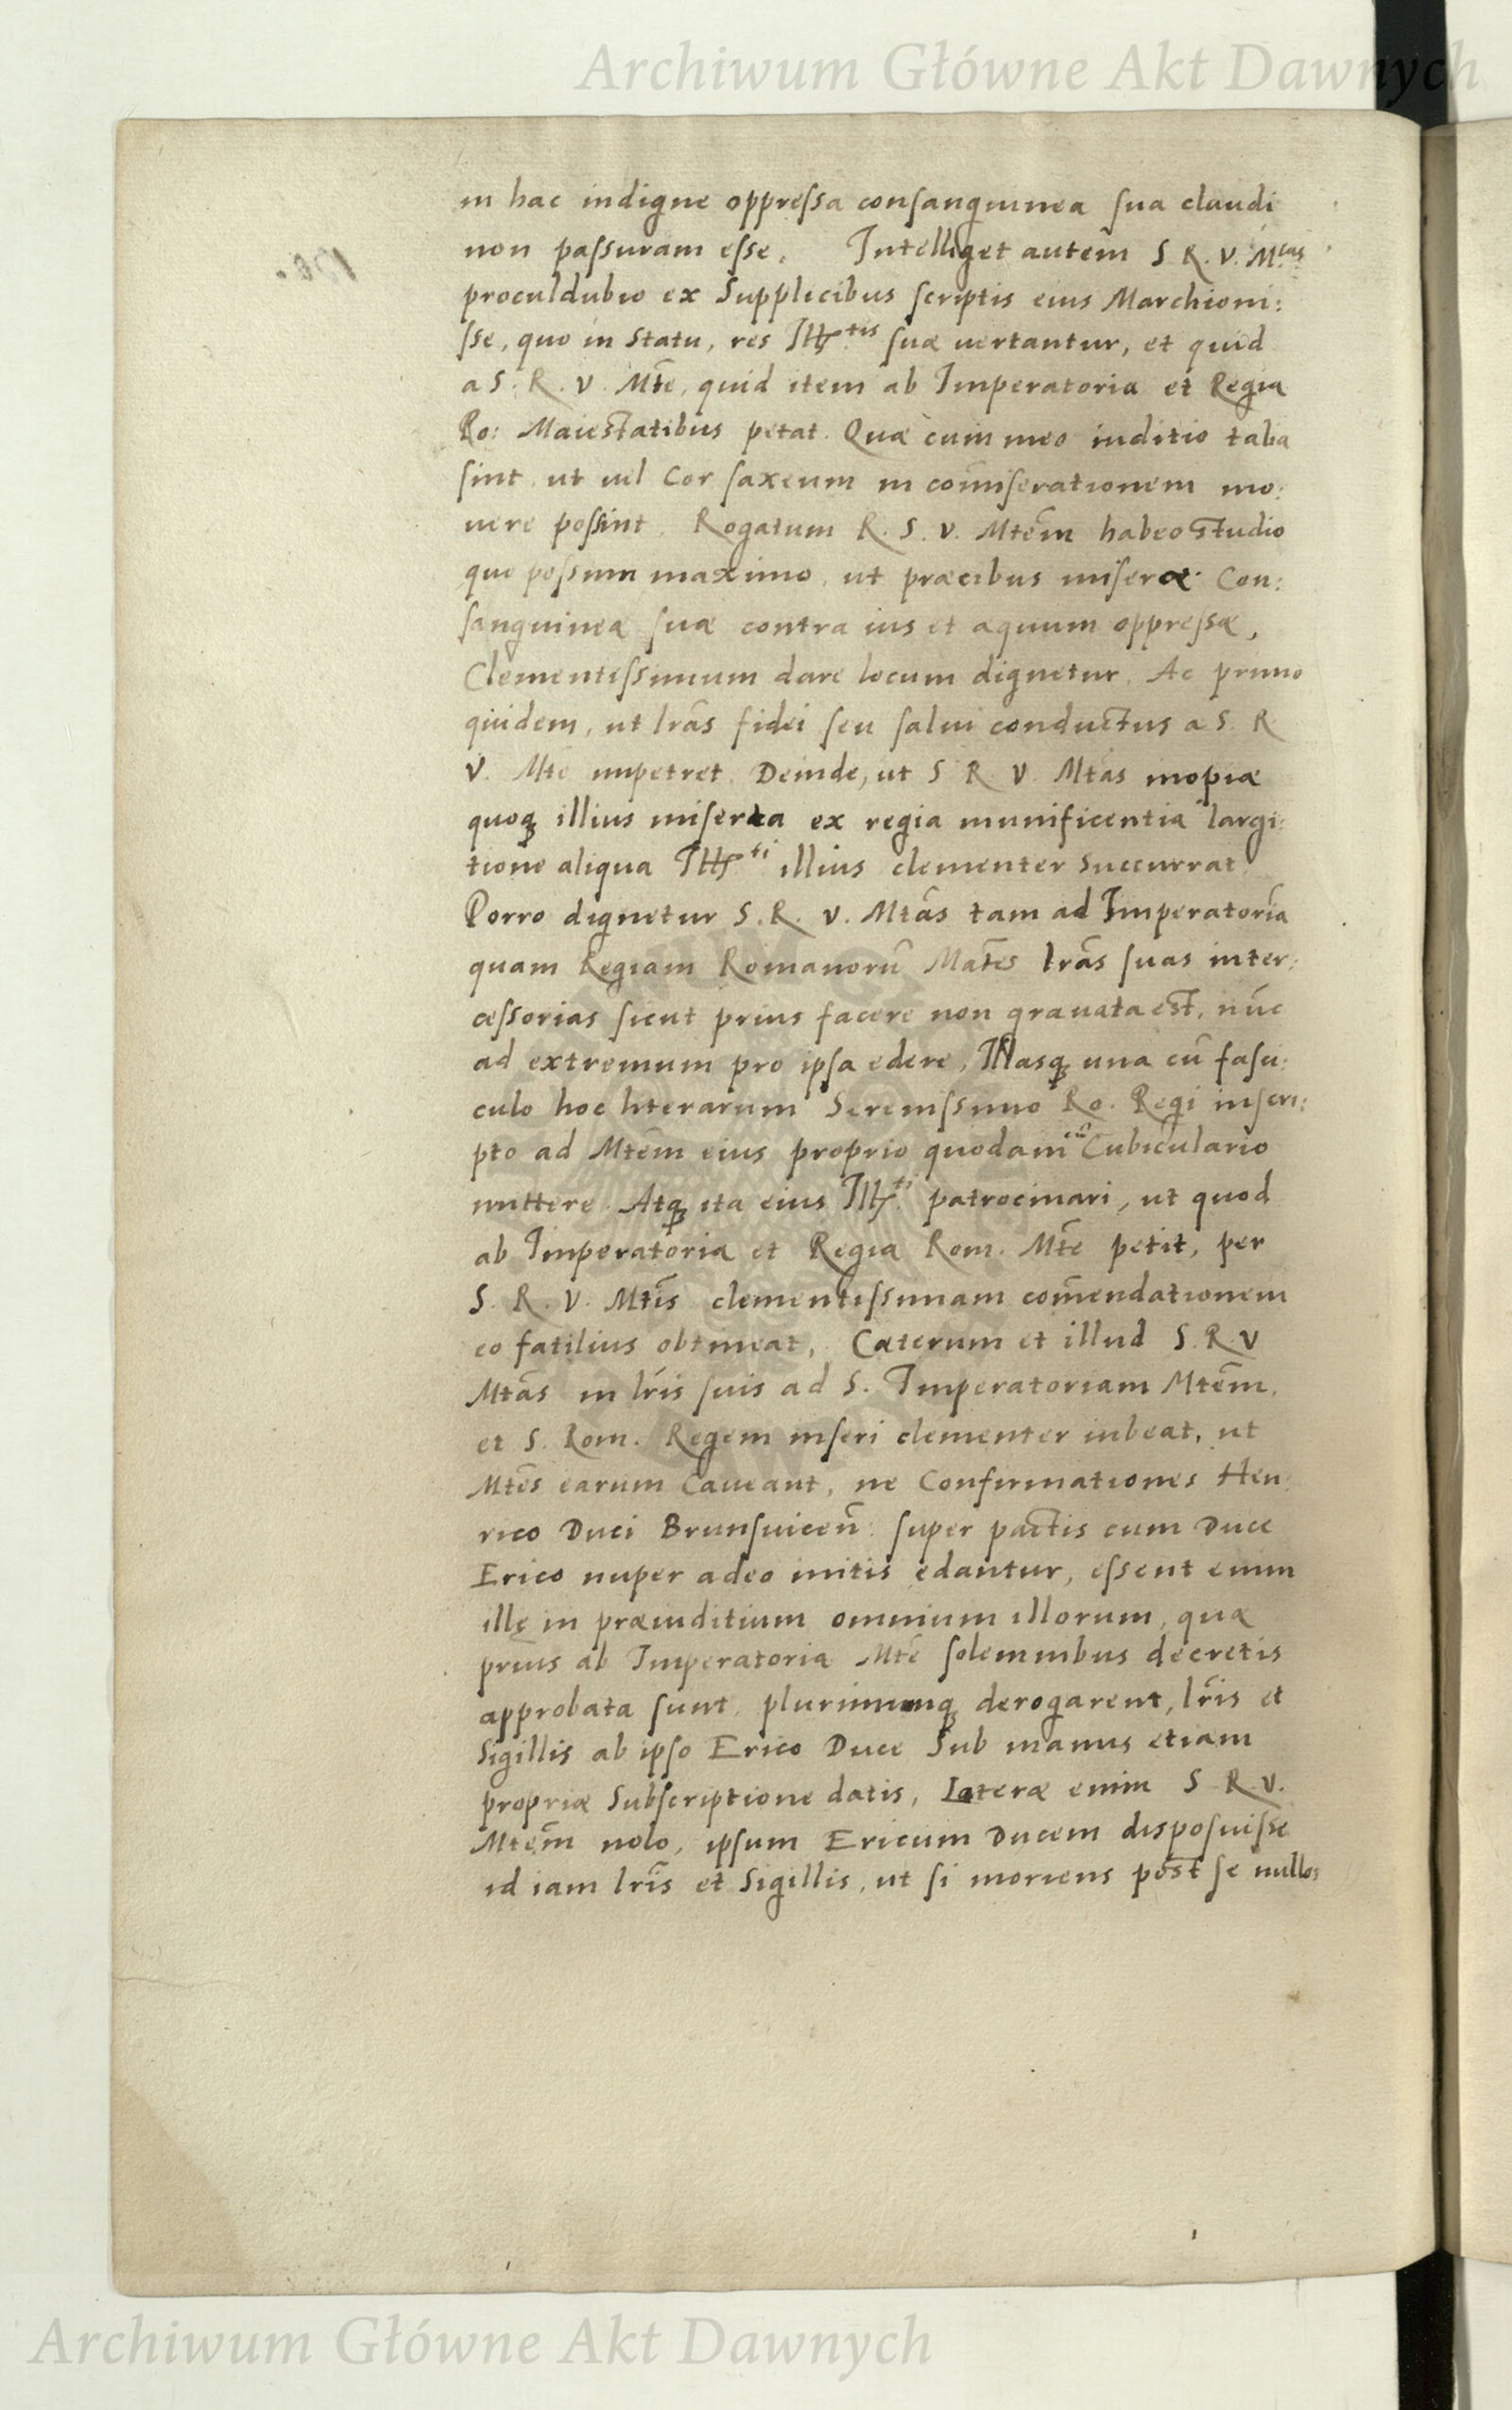 Archiwum Główne Akt Dawnych
in hac indigne oppressa consanguinea sua claudi
non passuram esse. Intelliget autem S R. V. Mtas
proculdubio ex Supplicibus scriptis eius Marchioni:
sse, quo in Statu, res Ill.tis suæ vertantur, et quid
a S. R. V. Mte, quid item ab Imperatoria et Regia
Ro: Maiestatibus petat. Quæ cum meo inditio talia
sint, ut vel Cor saxeum in com̄iserationem mo:
uere possint. Rogatum R. S. V. Mtem habeo studio
quo possum maximo, ut præcibus miseræ Con:
sanguineæ suæ contra ius et æquum oppressæ,
Clementissimum dare locum dignetur. Ac primo
quidem, ut lrãs fidei seu salui conductus a S. R
V. Mte impetret. Deinde, ut S R. V Mtas inopiæ
quoq illius miserta ex regia munificentia largi:
tione aliqua Ill.ti illius clementer Succurrat.
Porro dignetur S. R. V. Mtãs tam ad Imperatoriã
quam Regiam Romanorũ Mates lrãs suas inter:
cessorias sicut prius facere non grauata est, nũc
ad extremum pro ipsa edere, Illasq una cũ fasci:
culo hoc literarum Serenissimo Ro. Regi inscri:
pto ad Mtem eius proprio quodam cũ Cubiculario
mittere. Atq ita eius Ill.ti patrocinari, ut quod
ab Imperatoria et Regia Rom. Mte petit, per
S. R. V. Mtis clementissimam com̄endationem
eo fatilius obtineat. Cæterum et illud S. R. V
Mtãs in lr̃is suis ad S. Imperatoriam Mtem,
et S. Rom. Regem inseri clementer iubeat, ut
Mtes earum Caueant, ne Confirmationes Hen:
rico Duci Brunsuicen̄: super pactis cum Duce
Erico nuper adeo initis edantur, essent enim
illę in præiuditium omnium illorum, quæ
prius ab Imperatoria Mte solemnibus decretis
approbata sunt, plurimumq derogarent, lr̃is et
Sigillis ab ipso Erico Duce Sub manus etiam
propriæ Subscriptione datis, Latere enim S R. V.
Mtem nolo, ipsum Ericum Ducem disposuisse
id iam lr̃is et Sigillis, ut si moriens post se nullos
Archiwum Główne Akt Dawnych